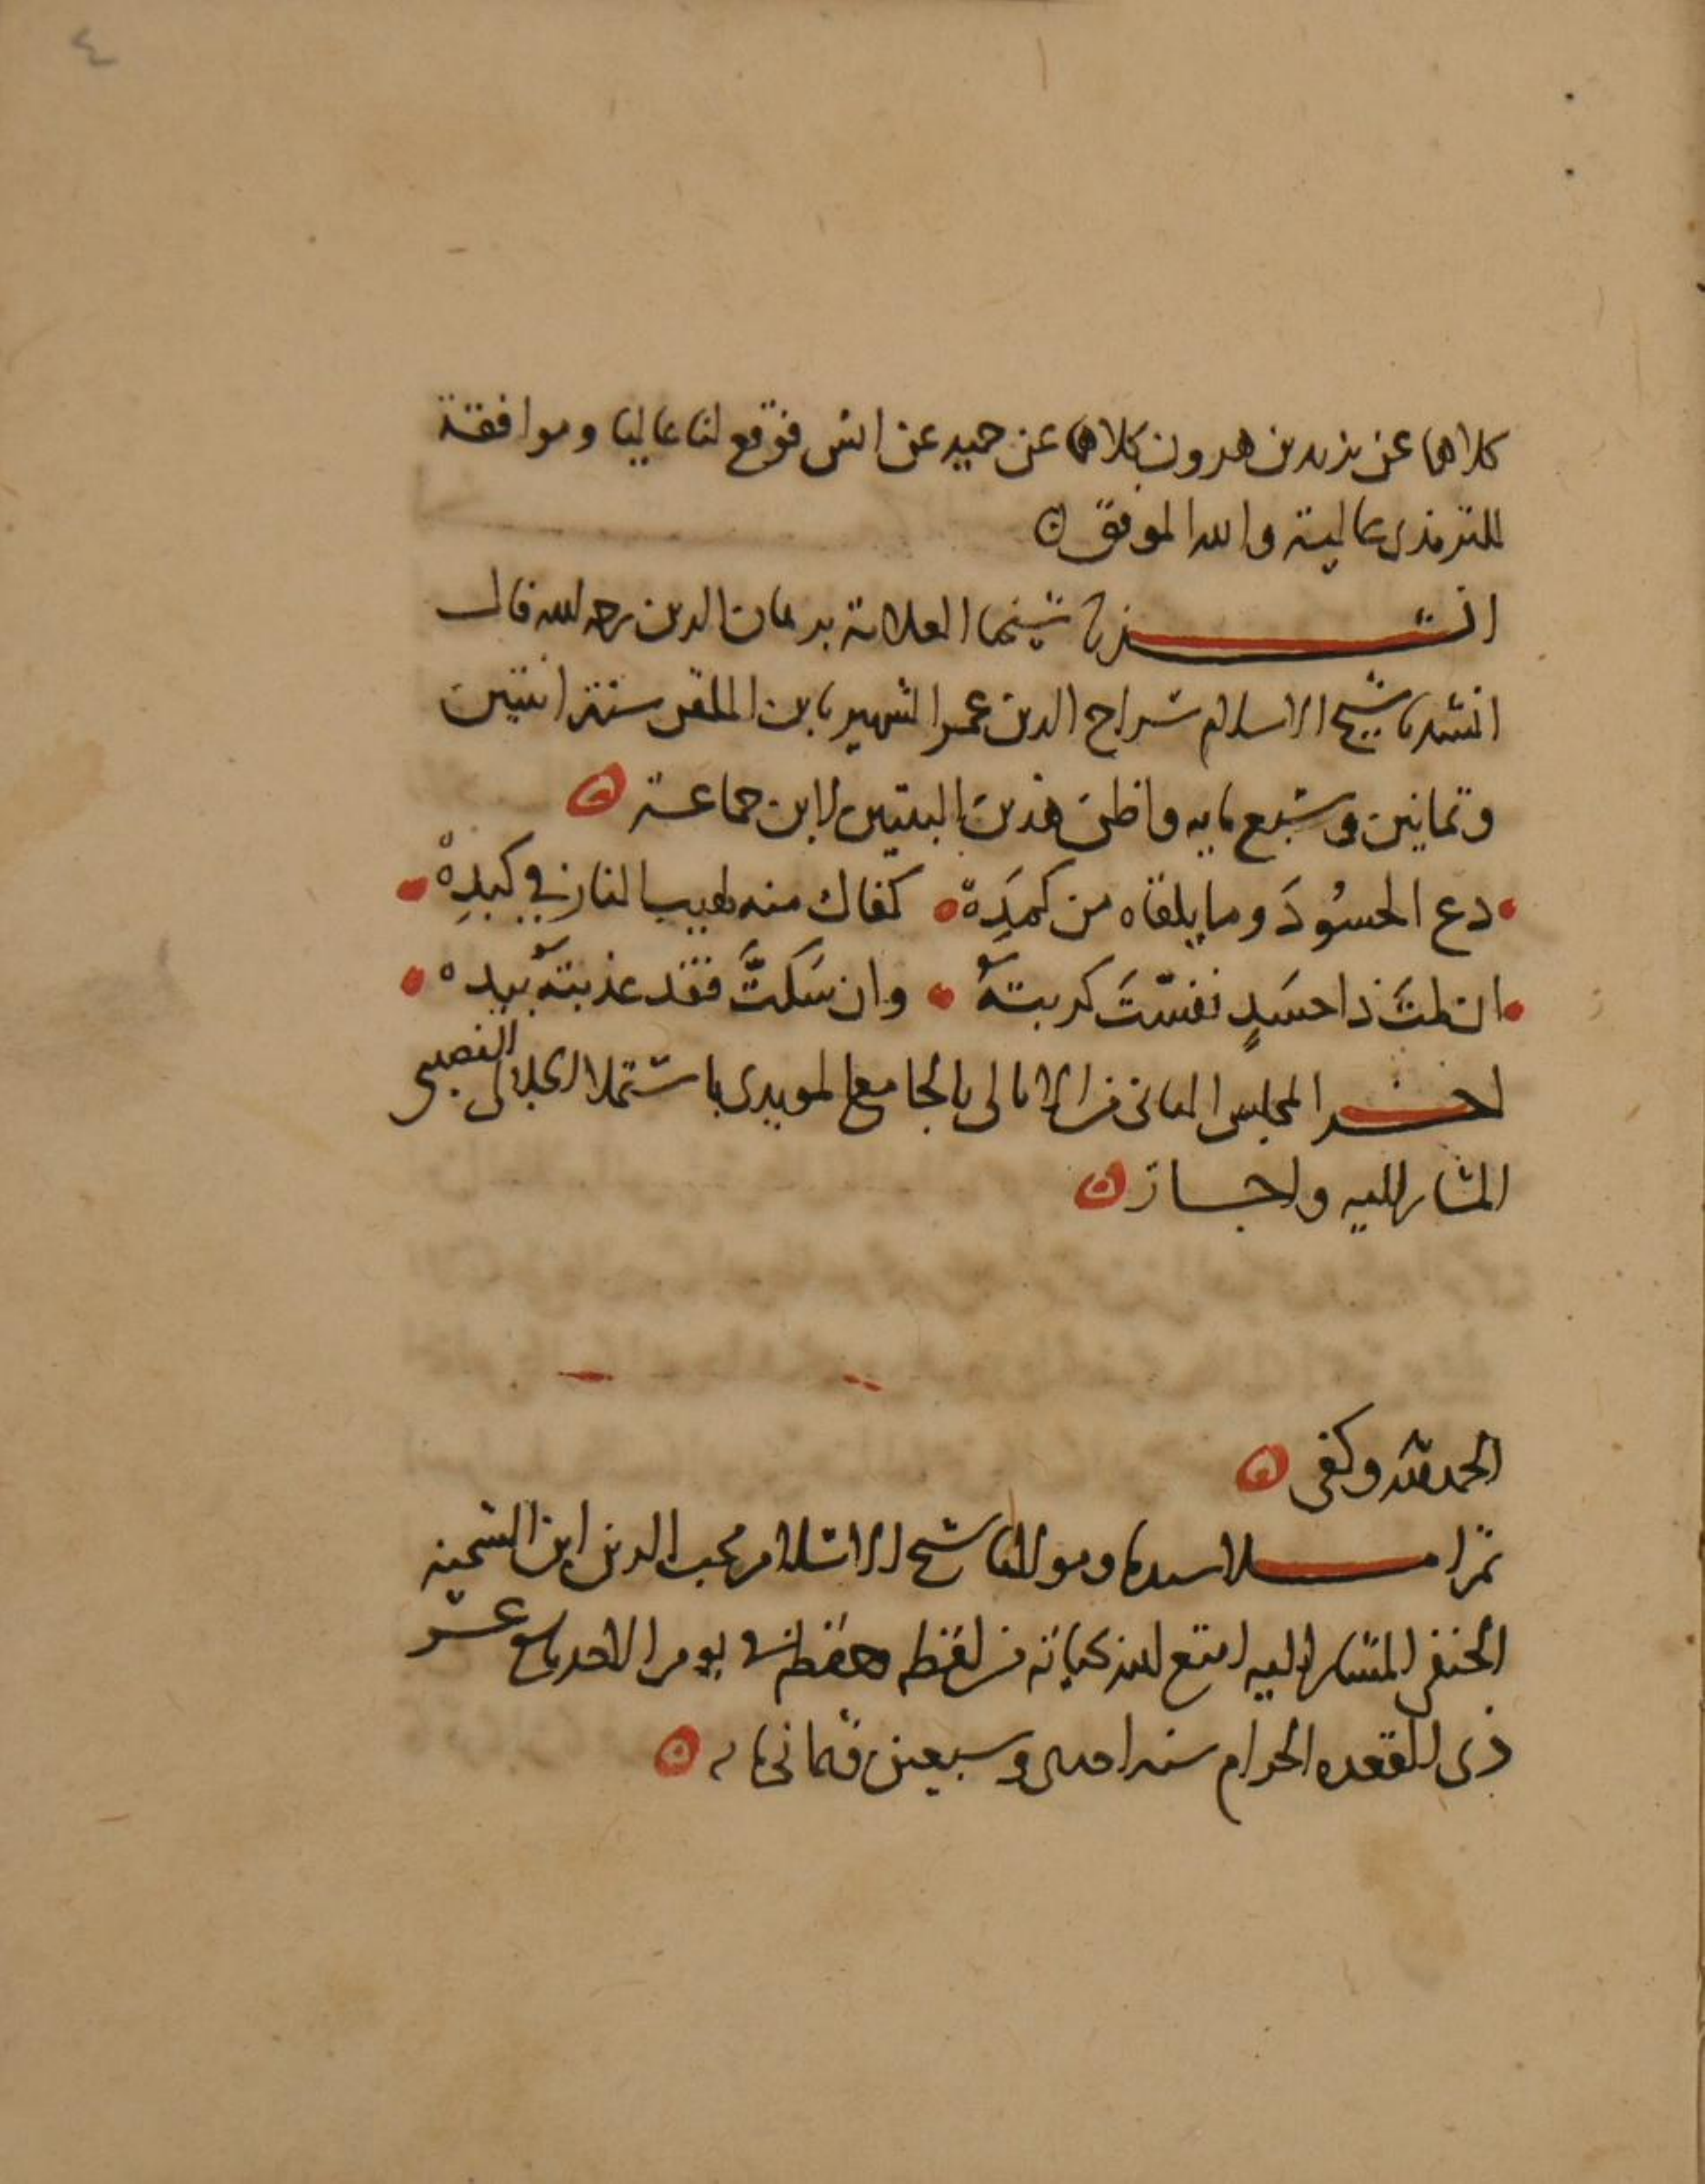 ٤
كلاهما عن يزيد بن هرون كلاهما عن حميد عن انس فوقع لنا عاليا وموافقة
للترمذى عالية والله الموفق
انشدنا شيخنا العلامة برهان الدين رحمه الله قال
انشدنا شيخ الاسلام سراج الدين عمر الشهير بابن الملقن سنة اثنتين
وثمانين وسبع مايه واظن هذين البيتين لابن جماعة
دع الحسُودَ وما يلقاه من كمَدِهْ كفاك منه لهيب النار في كبدِهْ
ان لمتَ ذا حسَدٍ نفسّتَ كربتهُ وان سَكتَّ فقد عذبتهُ بيده
اخر المجلس الثانى من الامالى بالجامع المويدى باستملا الجلالى النصيبى
المشار اليه واجاز
الحمد لله وكفى
ثم املا سيدنا ومولانا شيخ الاسلام محب الدين ابن الشحنه
الحنفى المشار اليه امتع الله بحياته من لفظه وحفظه فى يوم الاحد عشر
ذى القعده الحرام سنه احدى وسبعين وثمانى مايه